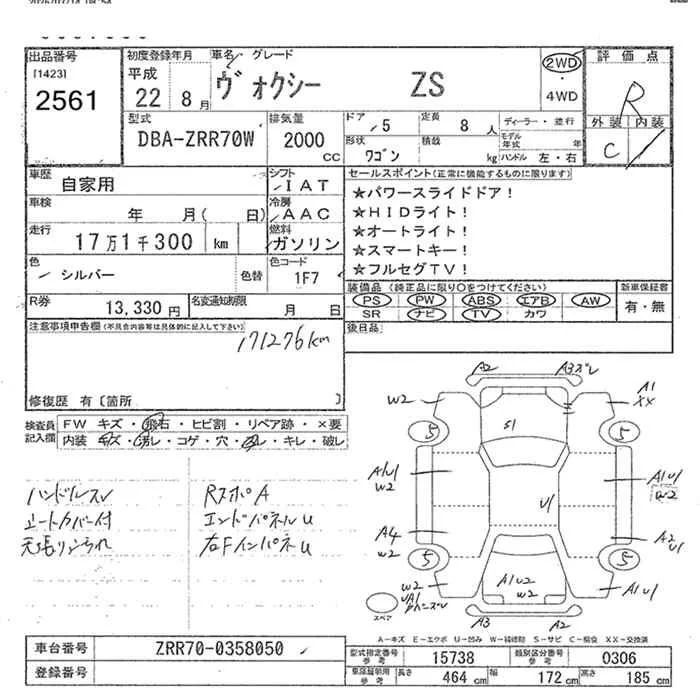 出品番号 初度登録年月 車名 グレード 評価点
[1423] 平成 ヴォクシー ZS 2WD R
2561 22 8月 ・4WD
外装 内装
型式 排気量 ドア 定員 ディーラー・並行 C
DBA-ZRR70W 2000 5 8人 モデル年式 年
CC 形状 ワゴン 積載 kg ハンドル 左・右
車歴 自家用 シフト IAT セールスポイント(正常に機能するものに限ります)
車検 年 月( 日) 冷房 AAC ★パワースライドドア!
★HIDライト!
走行 17万1千300 km 燃料 ガソリン ★オートライト!
★スマートキー!
色 シルバー 色替 色コード 1F7 ★フルセグTV!
装備品(純正品に限り○をつけてください) 新車保証書
R券 13,330円 名変通知期限 月 日 PS PW ABS エアB AW 有・無
SR ナビ TV カワ
注意事項申告欄(不具合内容等は具体的に記入して下さい) 後日品
171276km
修復歴 有〔箇所 〕
検査員 FW キズ・飛石・ヒビ割・リペア跡・×要
記入欄 内装 キズ・汚レ・コゲ・穴・スレ・キレ・破レ
A2 A3ズレ
W2 A1 XX
S1
5 5
A1U1 W2 U1 A1U1 W2
ハンドルスレ RスポA
シートカバー付 エンドパネルU
天張り汚れ 右FインパネU
A4 W2 A2 U1
5 5
W2 A1U2 W2 A1U1
UA1
スペア
A3 A2
A-キズ E-エクボ U-凹み W-補修跡 S-サビ C-腐食 XX-交換済
車台番号 ZRR70-0358050
登録番号
型式指定番号 参考 15738 類別区分番号 参考 0306
参考 長さ 464cm 幅 172cm 高さ 185cm